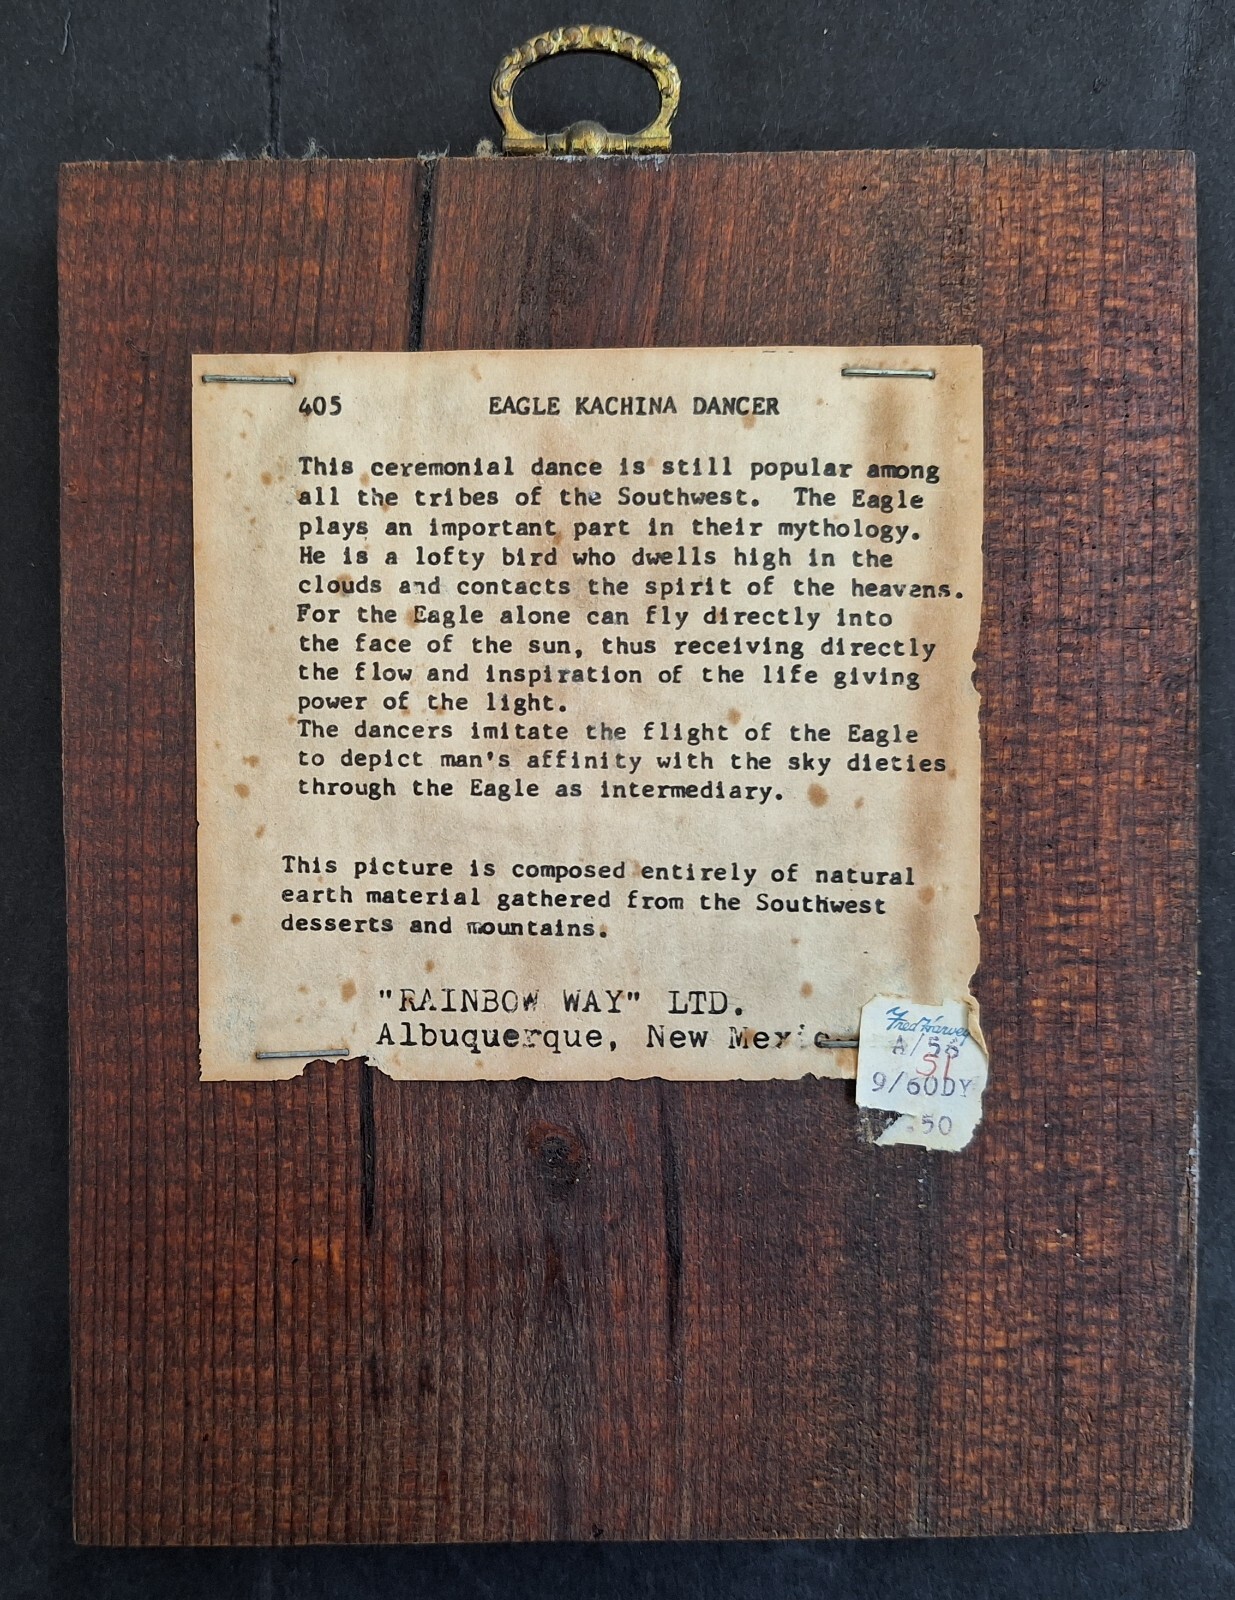 405 EAGLE KACHINA DANCER
This ceremonial dance is still popular among
all the tribes of the Southwest. The Eagle
plays an important part in their mythology.
He is a lofty bird who dwells high in the
clouds and contacts the spirit of the heavens.
For the Eagle alone can fly directly into
the face of the sun, thus receiving directly
the flow and inspiration of the life giving
power of the light.
The dancers imitate the flight of the Eagle
to depict man's affinity with the sky dieties
through the Eagle as intermediary.
This picture is composed entirely of natural
earth material gathered from the Southwest
desserts and mountains.
"RAINBOW WAY" LTD.
Albuquerque, New Mexic
Fred Harvey
A/56
51
9/60DY
.50